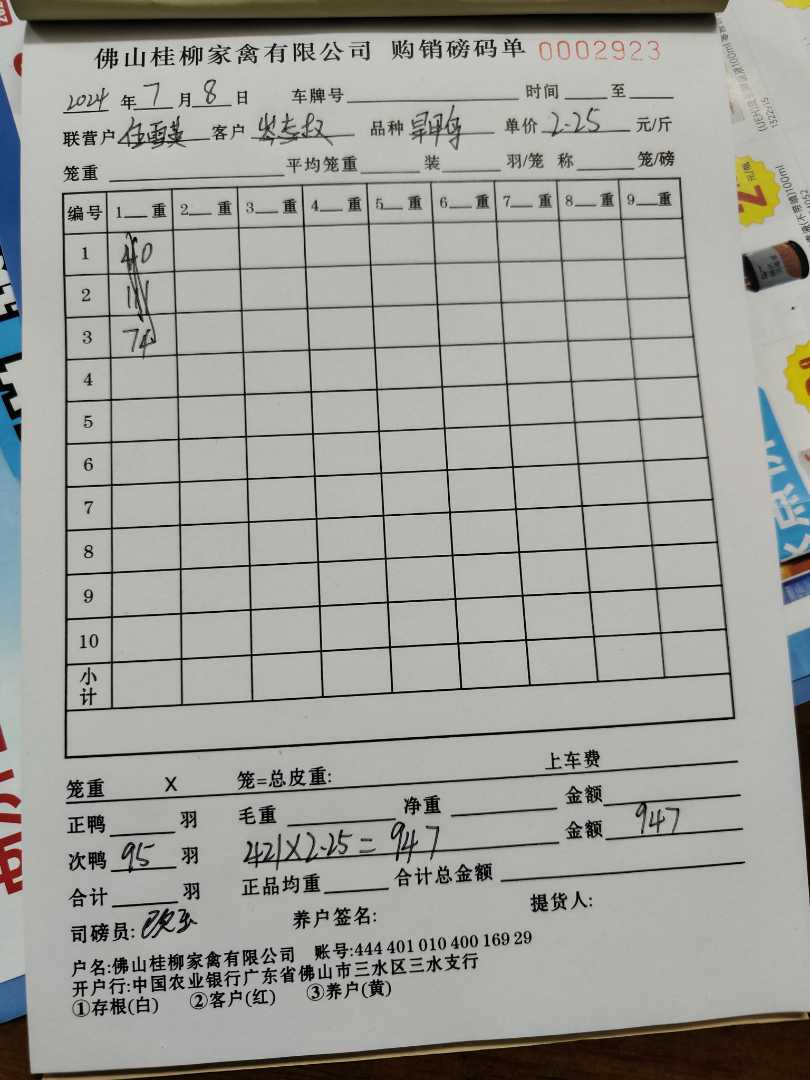 佛山桂柳家禽有限公司 购销磅码单 0002923
2024 年 7 月 8 日 车牌号 时间 至
联营户 伍雪英 客户 岑志权 品种 单价 2.25 元/斤
笼重 平均笼重 装 羽/笼 称 笼/磅
编号 1 重 2 重 3 重 4 重 5 重 6 重 7 重 8 重 9 重
1 40
2 111
3 74
4
5
6
7
8
9
10
小计
笼重 X 笼=总皮重: 上车费
正鸭 羽 毛重 净重 金额
次鸭 95 羽 421×2.25=947 金额 947
合计 羽 正品均重 合计总金额
司磅员: 养户签名: 提货人:
户名:佛山桂柳家禽有限公司 账号:444 401 010 400 169 29
开户行:中国农业银行广东省佛山市三水区三水支行
①存根(白) ②客户(红) ③养户(黄)